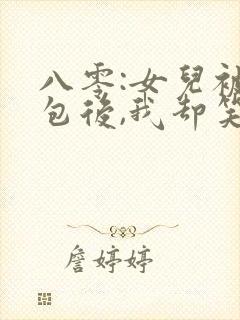 八零:女兒被
包後,我却笑
詹婷婷